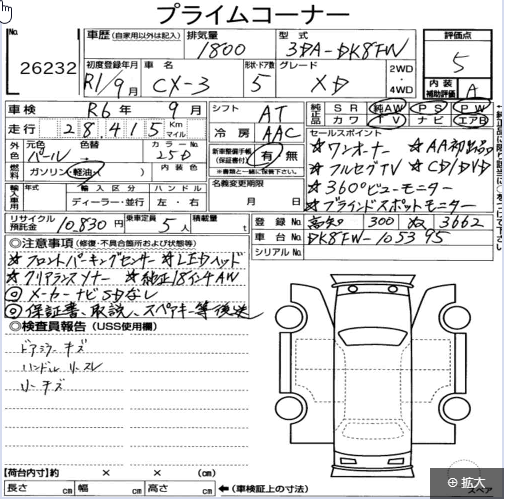 プライムコーナー
No.
26232
車歴 (自家用以外は記入)
排気量
1800
型式
3DA-DK8FW
評価点
5
初度登録年月
R1/9月
車名
CX-3
形状・ドア数
5
グレード
XD
2WD
・
4WD
内装
補助評価
A
車検
R6年 9月
シフト
AT
純正品
SR
純AW
PS
PW
カワ
TV
ナビ
エアB
走行
28,415
Km
マイル
冷房
AAC
セールスポイント
外色
元色
パール
色替
カラーNo.
25D
新車整備手帳
(保証書付)
有・無
★ワンオーナー ★AA初出品
★フルセグTV ★CD/DVD
★360°ビューモニター
★ブラインドスポットモニター
燃料
ガソリン・軽油・( )
内装色
※書類と一緒に扱って下さい。
名義変更期限
月 日
輸入車用
年式
輸入区分
ディーラー・並行
ハンドル
左・右
リサイクル
預託金
10,830円
乗車定員
5人
積載量
t
登録No.
高知 300
3662
車台No.
DK8FW-105395
シリアルNo.
◎注意事項 (修復・不具合箇所および状態等)
★フロントパーキングセンサー ★LEDヘッド
★クリアランスソナー ★純正18インチAW
◎メーカーナビSDなし
◎保証書、取説、スペアキー等後送
◎検査員報告 (USS使用欄)
ドアミラーキズ
ハンドルスレ
キズ
【荷台内寸】約 × × (cm)
長さ cm 幅 cm 高さ cm ←(車検証上の寸法)
スペア
拡大